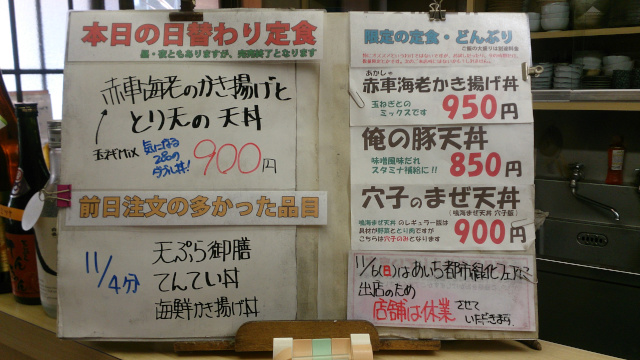 本日の日替わり定食
昼・夜ともありますが、完売終了となります
赤車海老のかき揚げと
とり天の天丼
玉ねぎMix
気になる
2品の
ダブル丼!
900円
前日注文の多かった品目
11/4分
天ぷら御膳
てんてい丼
海鮮かき揚げ丼
限定の定食・どんぶり
ご飯の大盛りは別途料金
あかしゃ
赤車海老かき揚げ丼
玉ねぎとの
ミックスです
950円
俺の豚天丼
味噌風味だれ
スタミナ補給に!!
850円
穴子のまぜ天丼
(鳴海まぜ天丼 穴子版)
鳴海まぜ天丼 のレギュラー版は
具材が野菜ととり肉ですが
こちらは穴子のみとなります
900円
11/6(日)はあいち都市緑化フェアにて
出店のため
店舗は休業させて
いただきます